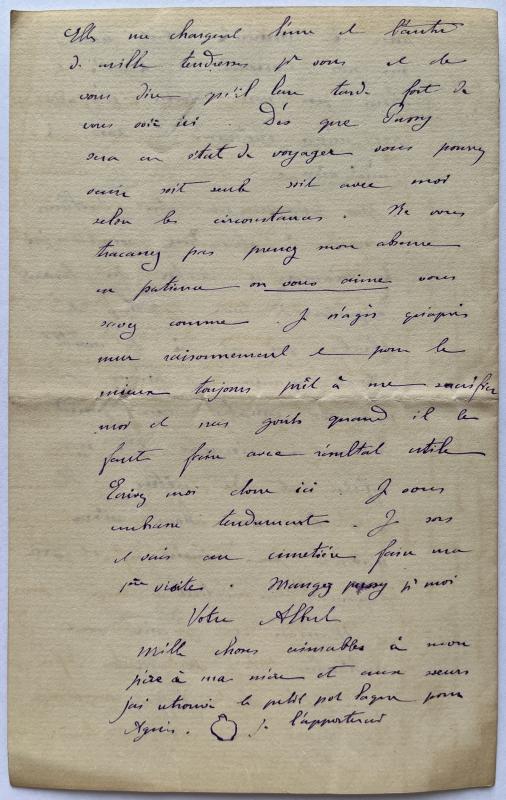 Elles me chargent l'une et l'autre
de mille tendresses pr vous et de
vous dire qu'il leur tarde fort de
vous voir ici. Dès que
sera en état de voyager vous pourrez
venir soit seule soit avec moi
selon les circonstances. Ne vous
tracassez pas prenez mon absence
en patience on vous aime vous
savez comme. Je n'agis qu'après
mur raisonnement et pour le
mieux toujours prêt à me sacrifier
moi et mes goûts quand il le
faut faire avec résultat utile
Ecrivez moi donc ici. Je vous
embrasse tendrement. Je sors
et vais au cimetière faire ma
1ère visite. Mangez pr moi
Votre Albert
Mille choses aimables à mon
père à ma mère et aux sœurs
j'ai retrouvé le petit pot pour
Agnès. je l'apporterai